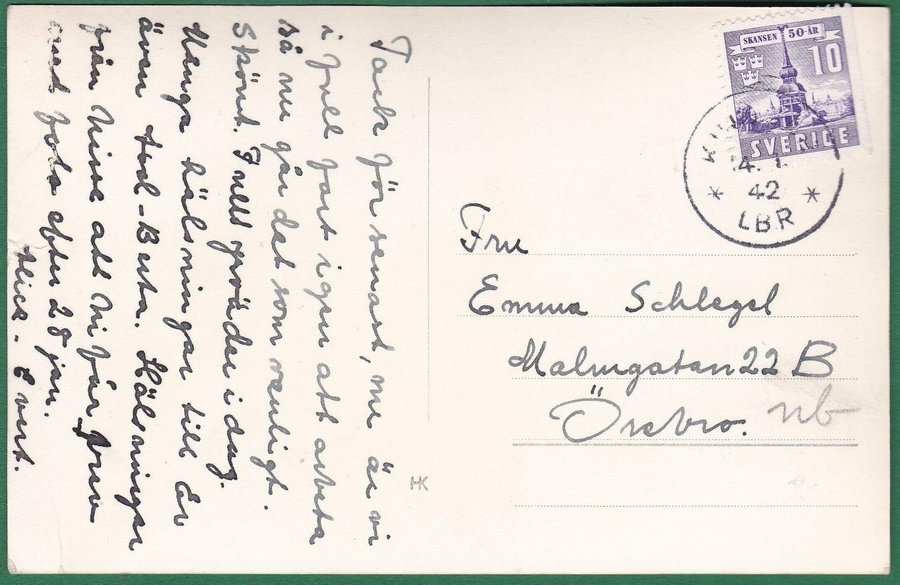 Tack för senast, nu är vi
i full fart igen att arbeta
så nu går det som vanligt.
Skönt. Full gräddar i dag.
Många hälsningar till Er
även And-Britta. Hälsningar
från Nisse att Ni får brev
med foto efter 28 jan.
Alice - Evert.
SKANSEN 50 ÅR
10
SVERIGE
4. 1.
42
LBR
Fru
Emma Schlegel
Malmgatan 22 B
Örebro.
nb